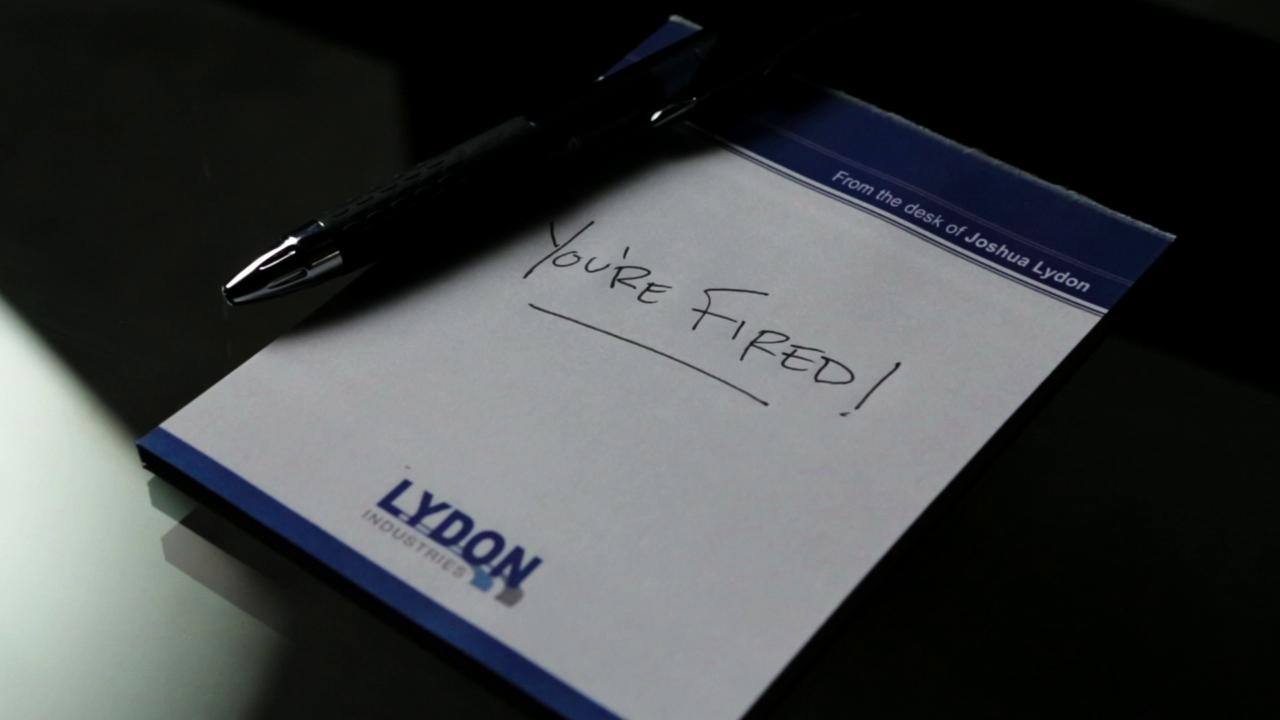 From the desk of Joshua Lydon
You're Fired!
LYDON
INDUSTRIES